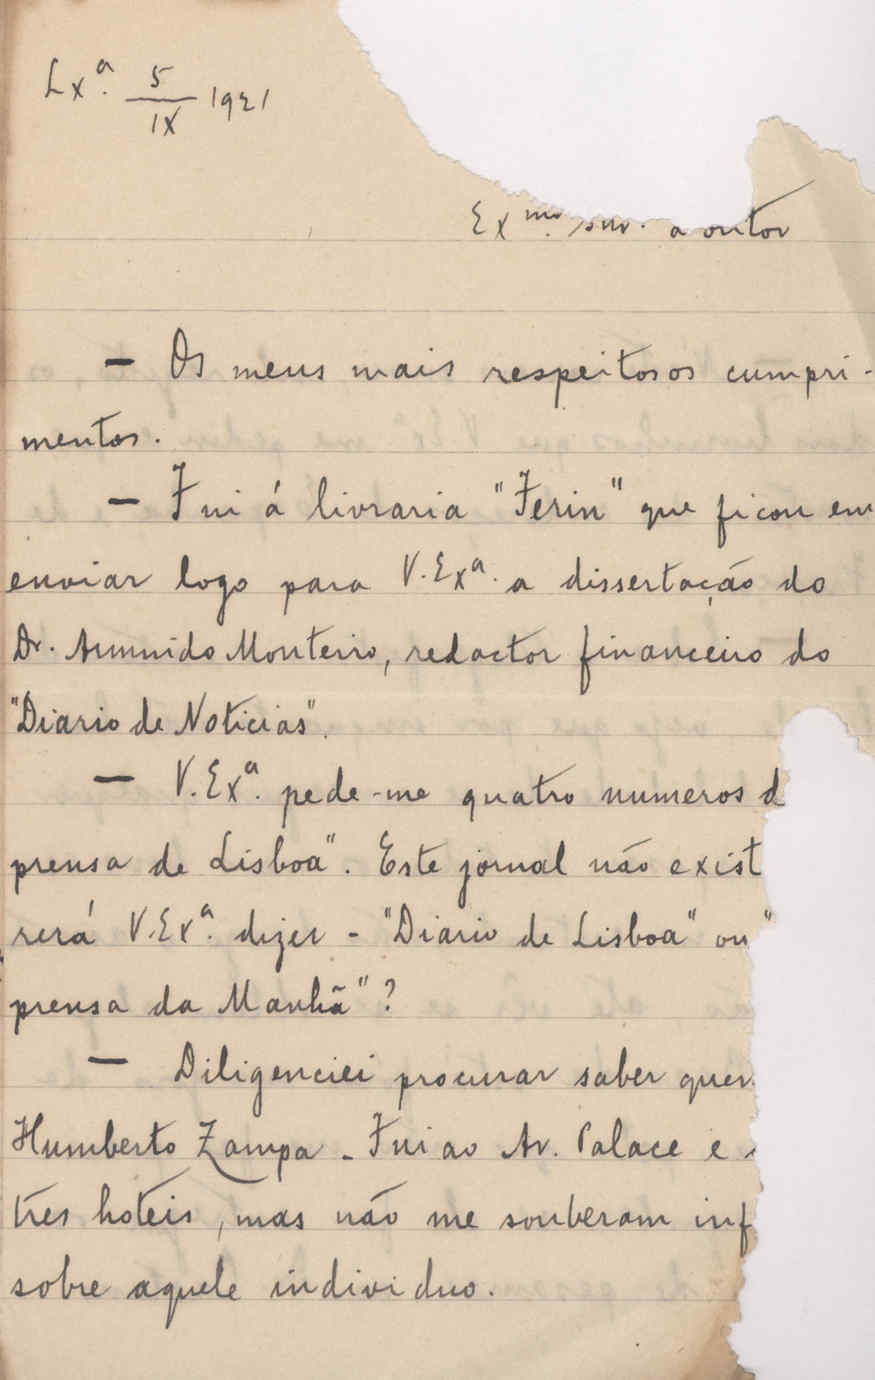 Lxª. 5/IX 1921
Exmo. snr. Doutor
— Os meus mais respeitosos cumpri-
mentos.
— Fui á livraria "Ferin" que ficou em
enviar logo para V. Exª. a dissertação do
Dr. Armindo Monteiro, redactor financeiro do
"Diario de Noticias".
— V. Exª. pede-me quatro numeros d
prensa de Lisboa". Este jornal não exist
rerá V. Exª. dizer - "Diario de Lisboa" ou "
prensa da Manhã"?
— Diligenciei procurar saber quem
Humberto Zampa - Fui ao Av. Palace e
três hoteis, mas não me souberam inf
sobre aquele individuo.